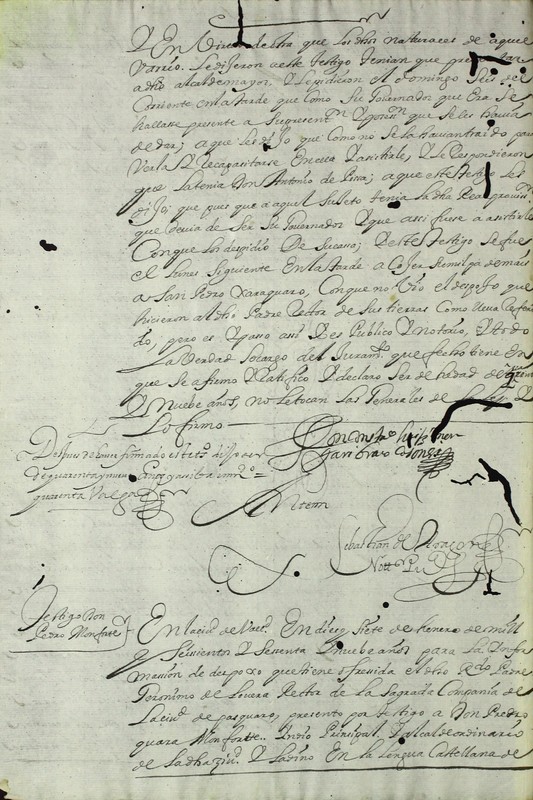 Y En Virtud de ella que los dhos naturaes de aquel
Varrio. Le dixeron a este testigo tenian que presentar
a dho alcalde mayor, Y le pidieron el domingo Seis del
Corriente en la tarde que como Su Gouernador que Era Se
hallasse presente a Su presen.n Y poses.on que Se les hauia
de dar; a que les dijo que como no Se la hauian traido para
Verla Y Recapasitarse En ella Y asistirles, Y le Respondieron
que la tenia Don Antonio de Piña; a que este testigo les
dijo; que pues que aquel Sujeto tenia la dha Real prouiss.on
que deuia de Ser Su Gouernador Y que assi fuese a asistirles
Con que los despidio De Su casso; Y este testigo Se fue
el Lunes Siguiente En la tarde a Cojer Su milpa de mais
a San Pedro Xaraquaro, Con que no Vio el despojo que
hicieron al dho Padre Rector de Sus tierras Como lleua Referi
do, pero es Y paso assi Y es Publico Y notorio, Y todo
La Verdad So cargo del Juram.to que fecho tiene En
que Se afirmo Y Ratifico Y declaro Ser de hedad de
Y Nuebe años, no le tocan las Generales de la ley Y
Lo firmo
Despues de hauer firmado este t.o dijo Ser
de quarenta y nueue años
quarenta Valga
Don
Antemi
Sebastian de
Nott.o Pu.co
Testigo Don
Pedro Monfarte
En la ciu.d de Vall.d En diez y Siete de henero de mill
Y Seisientos Y Sesenta Y nuebe años para La Ynfor
massion de despoxo que tiene ofresida el dho R.do Padre
Geronimo de Louera Rector de La Sagrada Compania de
La ciu.d de pasquaro, presento por testigo a Don Pedro
quara Monfarte.. Indio Principal. Y alcalde ordinario
de La dha Ziu.d Y Ladino En la Lengua Castellana de